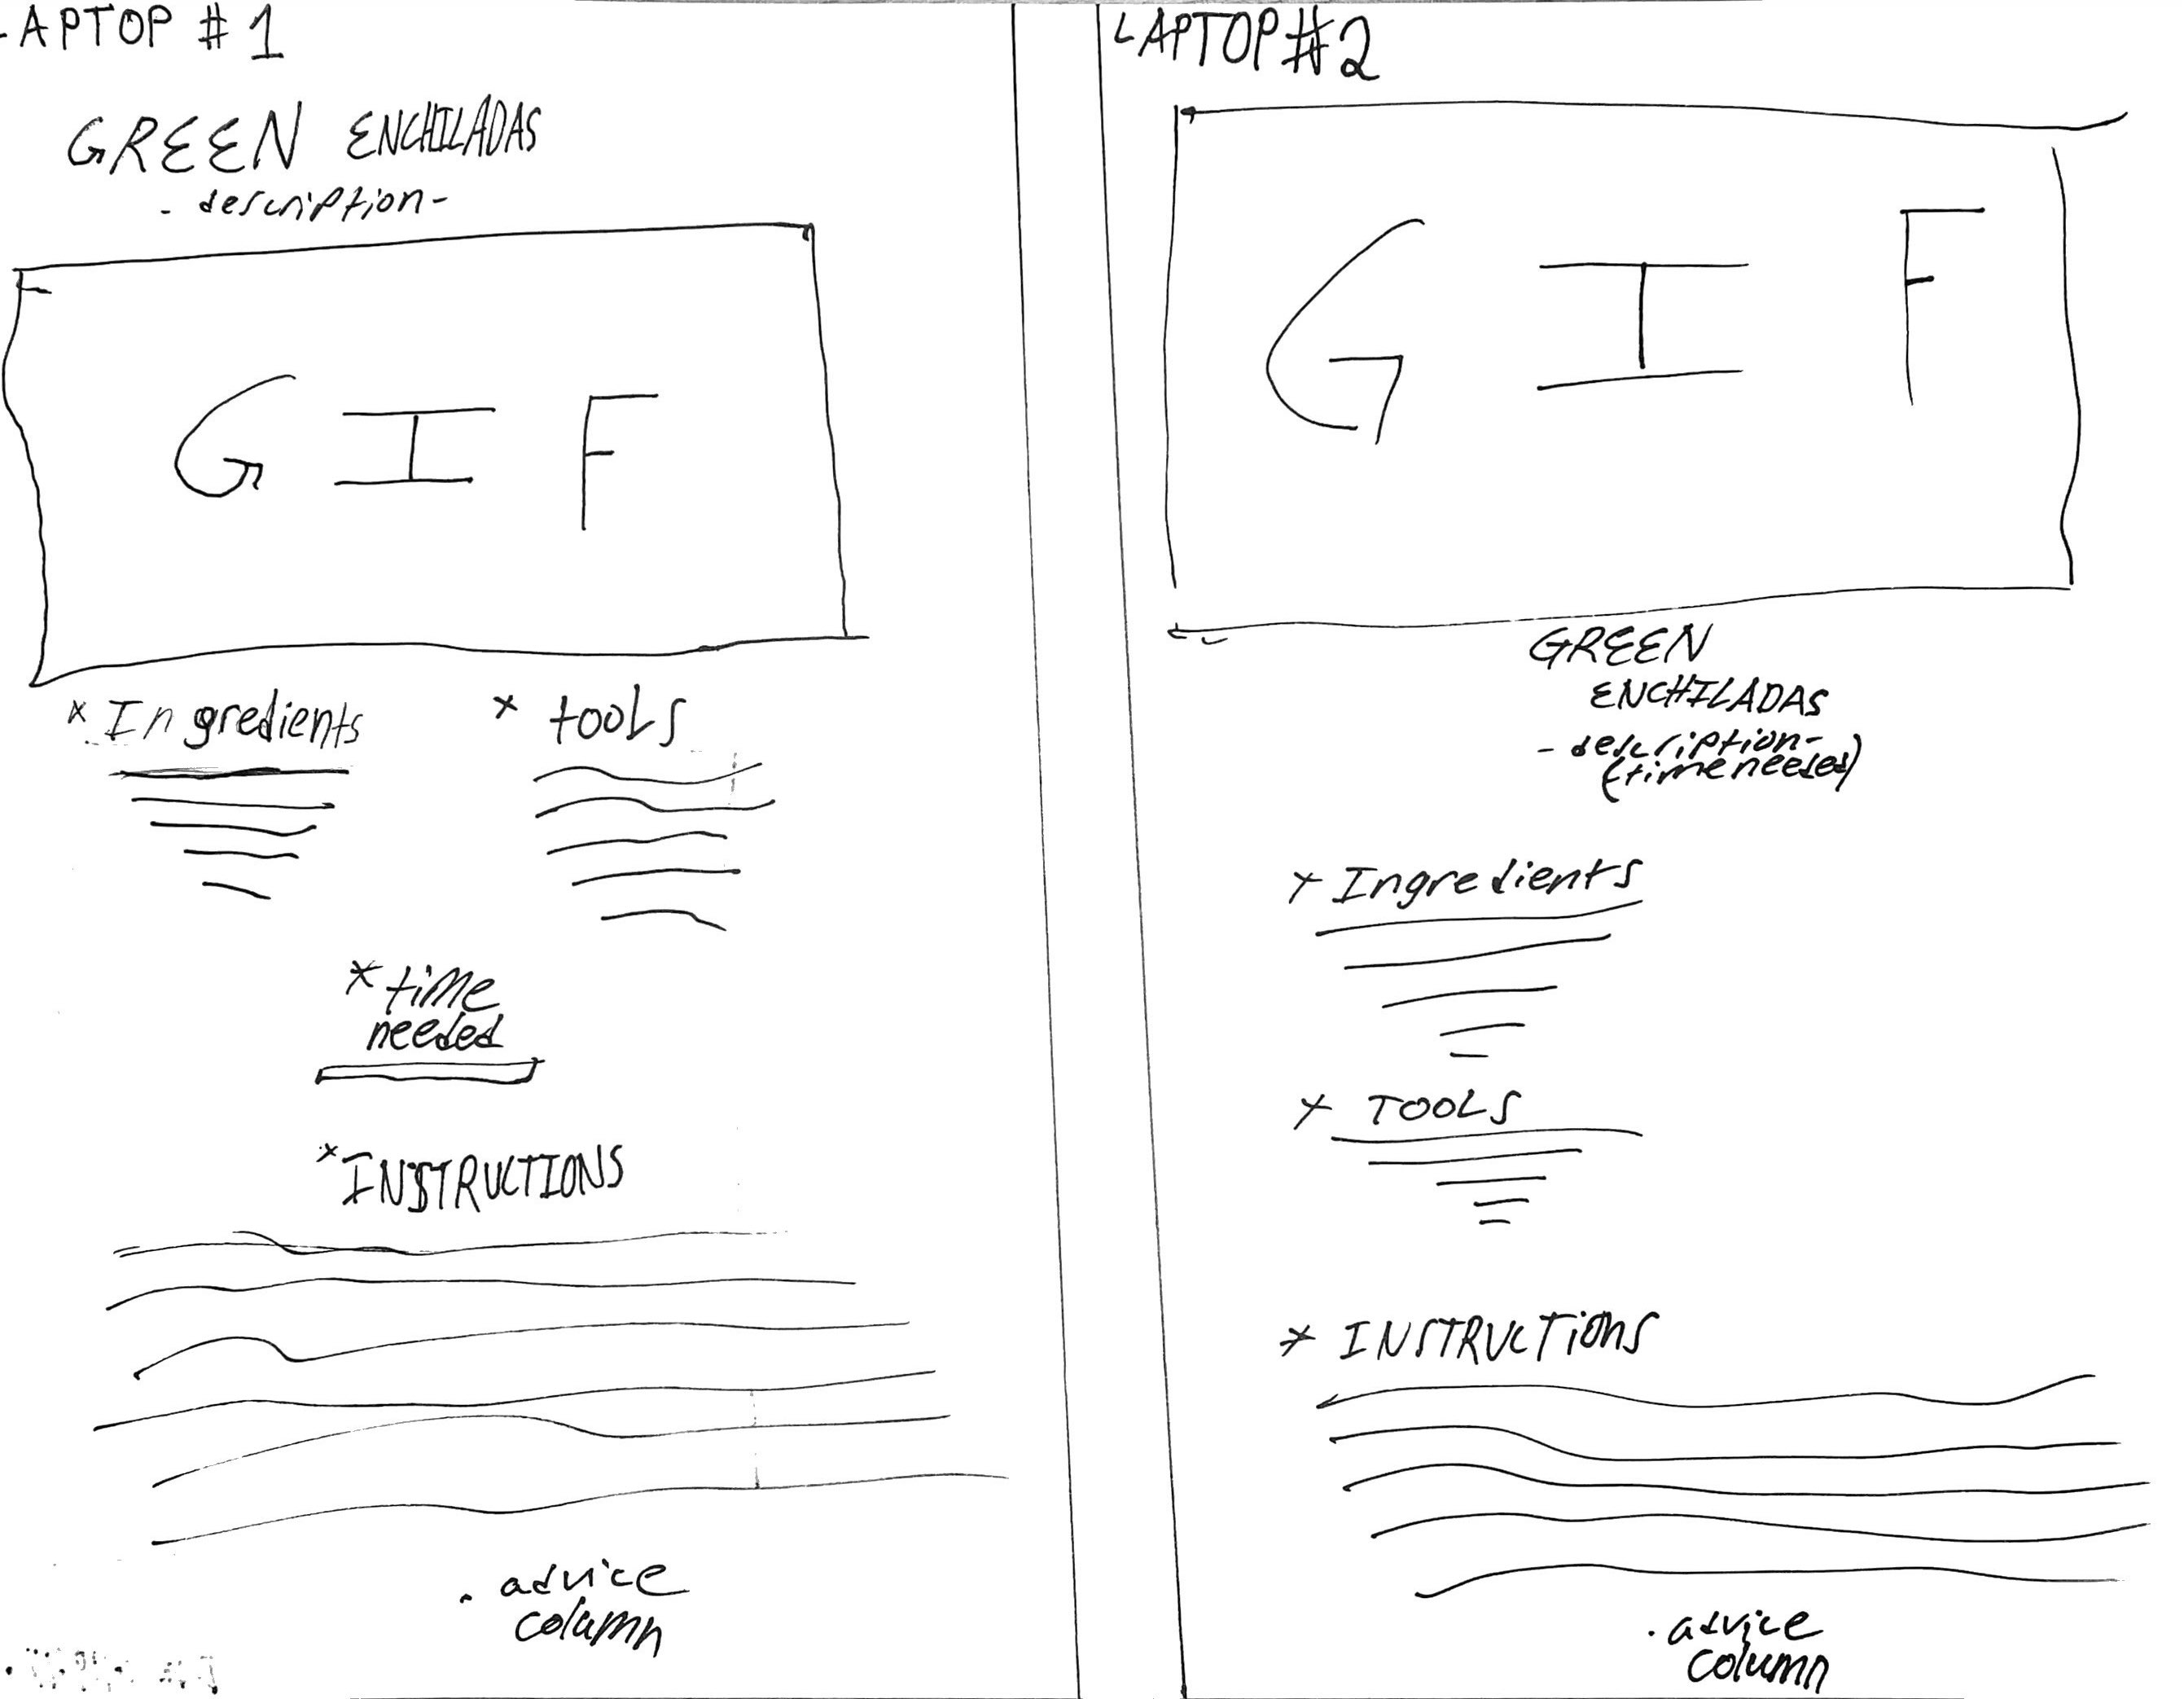 LAPTOP #1
GREEN ENCHILADAS
- description-
GIF
* Ingredients
* tools
* time
needed
* INSTRUCTIONS
. advice
column
LAPTOP #2
GIF
GREEN
ENCHILADAS
- description-
(time needed)
* Ingredients
* TOOLS
* INSTRUCTIONS
. advice
column